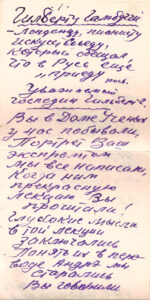 Гилберту Гамбургу
- Лондонцу, пииту
исшу всюду,
который сказал
что в Русь ещё
"приеду"
Уважаемый
господин Гилберт!
Вы в Доме Учёных
у нас побывали,
Портрет Ваш
экспромтом
Мы все написали
Когда нам
прекрасную
лекцию Вы
прочитали!
Глубокие мысли
в той лекции
Заключались
Понять их в пере-
воде
мы
старались
Вы говорили